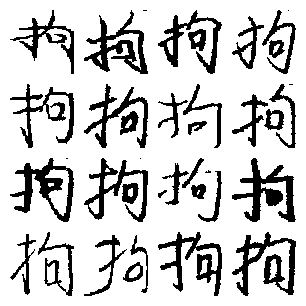 拘拘拘拘
拘拘拘拘
拘拘拘拘
拘拘拘拘